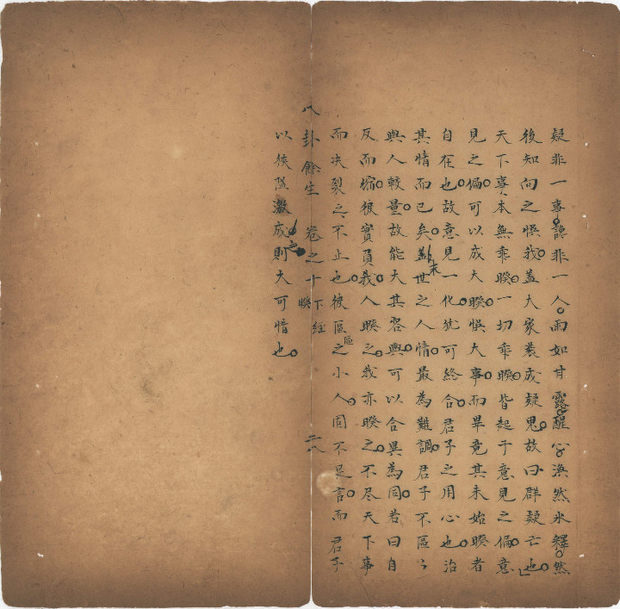 疑非一事謗非一人雨如甘露醒心渙然氷釋然
後知向之悮我蓋大家裝成疑鬼故曰群疑亡也
天下事本無乖睽一切乖睽皆起于意見之偏意
見之偏可以成大睽悮大事而畢竟其未始睽者
自在也故意見一化犹可終合君子之用心也治
其情而已矣世之人情最為難調君子不區〻
與人較量故能大其容與可以合異為同昔曰自
反而縮彼實負我人睽之我亦睽之不尽天下事
而决裂之不止也彼區區之小人固不足言而君子
八卦餘生 卷之十 下經 睽 二八
以狹隘激成則大可惜也